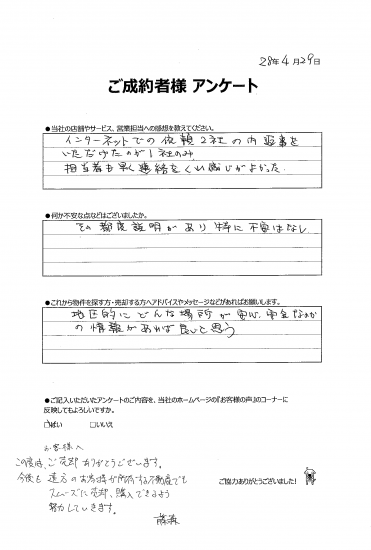 28年4月29日
ご成約者様 アンケート
●当社の店舗やサービス、営業担当への感想を教えてください。
インターネットでの依頼2社の内返事を
いただけたのが1社のみ
担当者も早く連絡をくれ感じがよかった
●何か不安な点などはございましたか。
その都度説明があり特に不安はなし
●これから物件を探す方・売却する方へアドバイスやメッセージなどがあればお願いします。
地区的にどんな場所が安心、安全なのか
の情報があれば良いと思う
●ご記入いただいたアンケートのご内容を、当社のホームページの『お客様の声』のコーナーに
反映してもよろしいですか。
□はい □いいえ
お客様へ
この度は、ご売却ありがとうございます。
今後も遠方のお客様が所有する不動産でも
スムーズに売却、購入できるよう
努力していきます。
ご協力ありがとうございました!